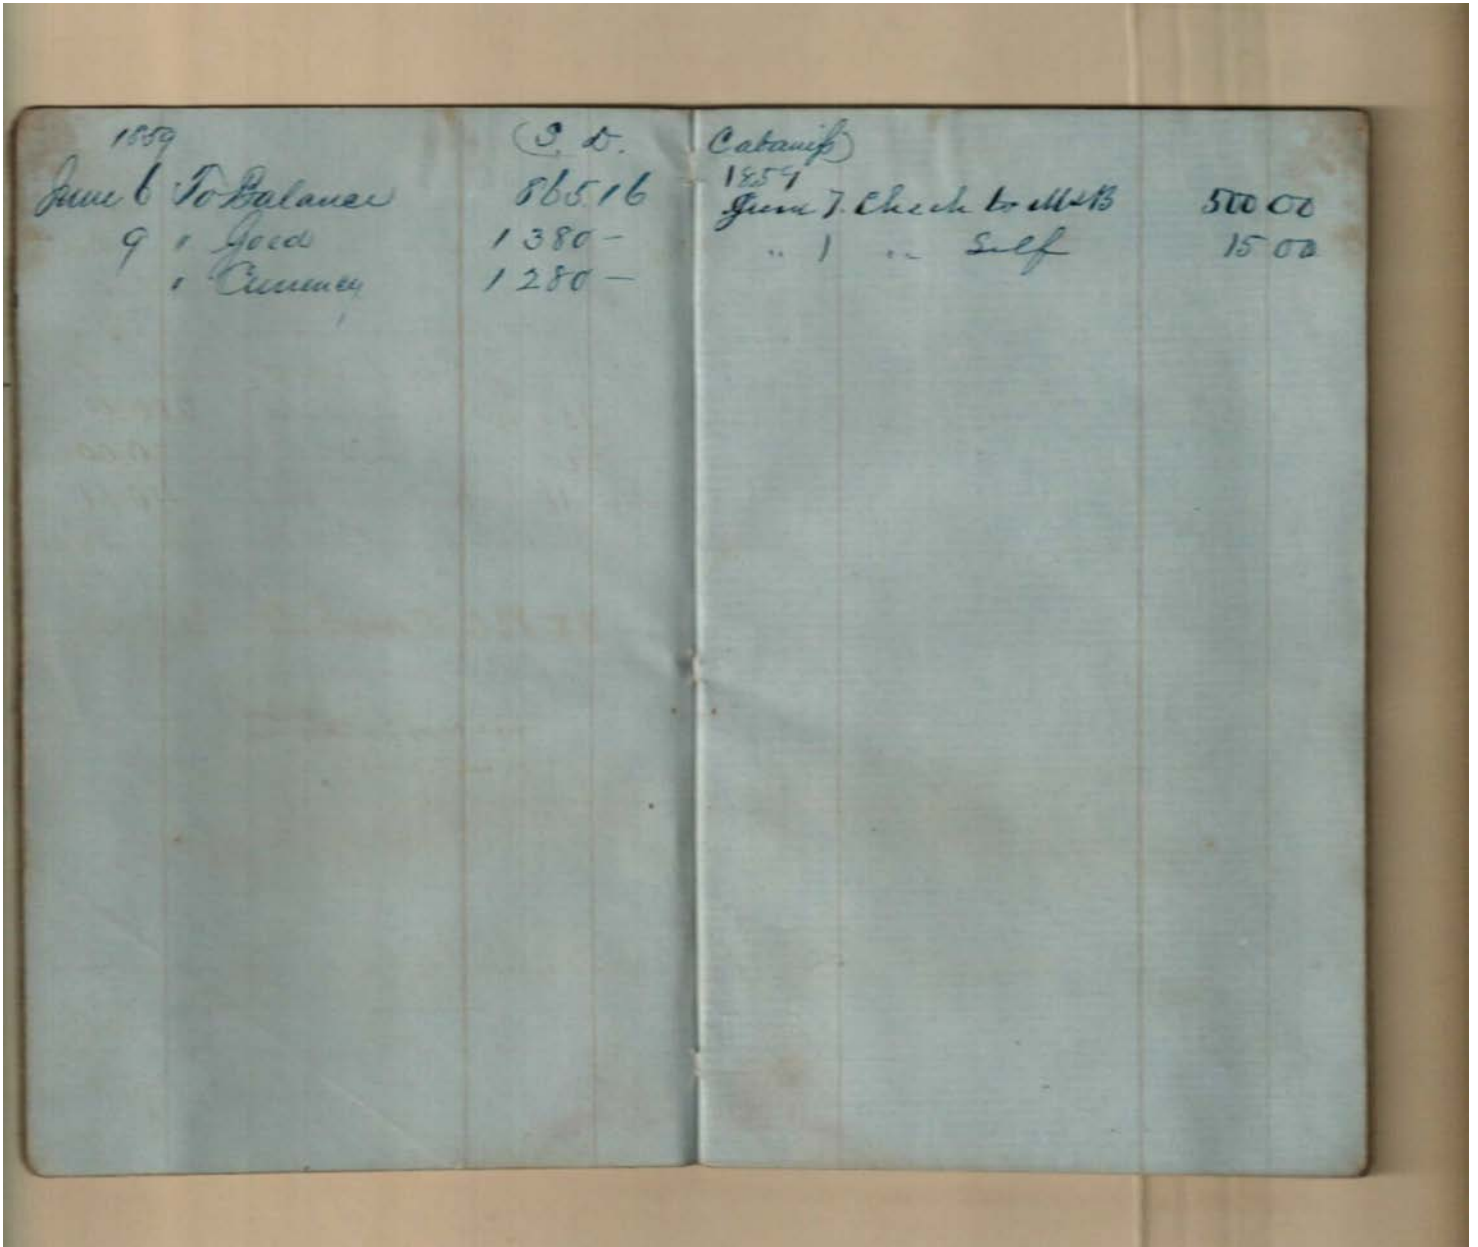 1859 (S. D.
June 6 To Balance 865.16
9 " Gold 1380 —
" Currency 1280 —
Cabaniss)
1859
June 7. Check to M&B 500 00
" " " Self 15 00